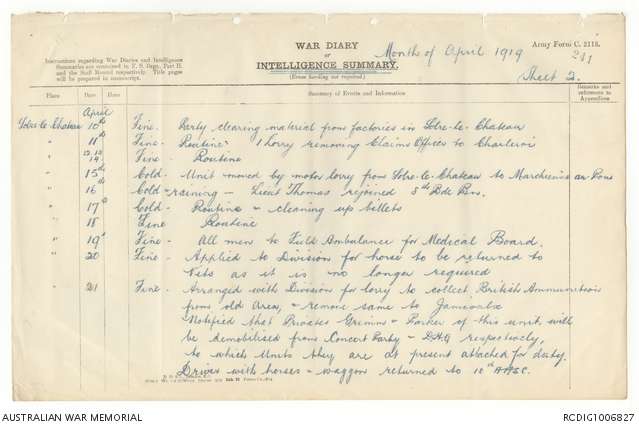 WAR DIARY
or
INTELLIGENCE SUMMARY.
(Erase heading not required.)
Month of April 1919
Army Form C. 2118.
Sheet 2.
Instructions regarding War Diaries and Intelligence
Summaries are contained in F. S. Regs., Part II.
and the Staff Manual respectively. Title pages
will be prepared in manuscript.
Place Date Summary of Events and Information Remarks and references to Appendices
April
Solre-le-Chateau 10th Fine. Party clearing material from factories in Solre-le-Chateau
" 11th Fine. Routine. 1 lorry removing Claims Officer to Charleroi
" 12.13 14. Fine. Routine
" 15th Cold. Unit moved by motor lorry from Solre-le-Chateau to Marchienne au Pons
" 16th Cold & raining - Lieut Thomas rejoined 8th Bde Bns.
" 17th Cold. Routine & cleaning up billets
" 18 Fine Routine
" 19th Fine. All men to Field Ambulance for Medical Board.
" 20 Fine. Applied to Division for horse to be returned to
Vets as it is no longer required
" 21 Fine. Arranged with Division for lorry to collect British Ammunition
from old area, & remove same to Jamioulx
Notified that Privates Grimms & Parker of this unit will
be demobilised from Concert Party & DHQ respectively,
to which Units they are at present attached for duty.
Driver with horses & waggon returned to 10th AASC.
AUSTRALIAN WAR MEMORIAL
RCDIG1006827